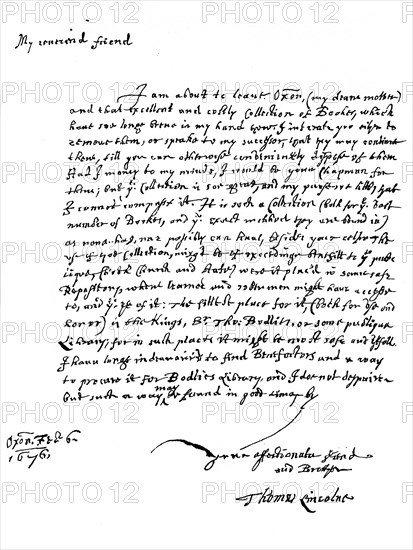 My reverend friend
I am about to leave Oxōn, (my deare mother)
and that excellent and costly Collection of Bookes, which
have soe longe beene in my hand now, I intreate you either to
remove them, or speake to my successor, that they may continue
there, till you can otherwise conveniently dispose of them
Had I money to my minde, I would be your Chapman for
them; but yᵉ Collection is soe great, and my purse soe little, that
I cannot compasse it. It is such a Collection (both for yᵉ vast
number of Bookes, and yᵉ exact method they are bound in)
as none has, nor possibly can have, beside your selfe The
use of that Collection, might be of exceedinge benefitt to yᵉ publ-
ique, (both Church and State) were it plac'd in some safe
Repository, where learned and sober men might have accesse
to, and yᵉ use of it: The fittest place for it, (both for use and
honor) is the Kings, Sʳ. Tho: Bodlies, or some publique
Library, for in such places it might be most safe and usefull.
I have longe indeavoured to find Benefactors, and a way
to procure it for Bodlies Library, and I doe not despaire
but such a way may be found in good time by
Oxōn. Feb: 6.
1676
your affectionate friend
and Brother
Thomas Lincolne
PHOTO12